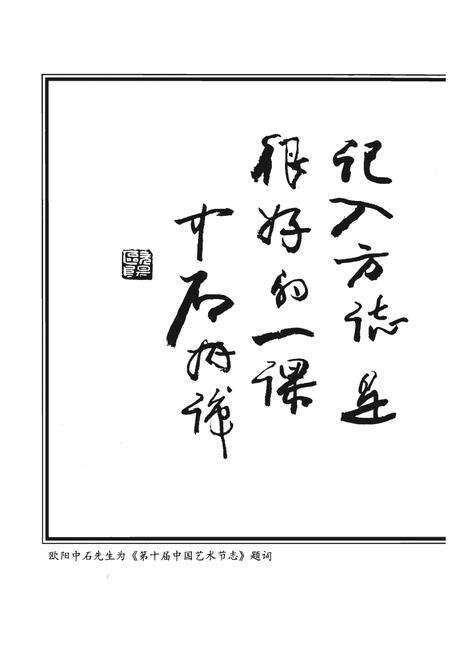 记入方誌是
很好的一课
中石拜课
欧阳中石先生为《第十届中国艺术节志》题词